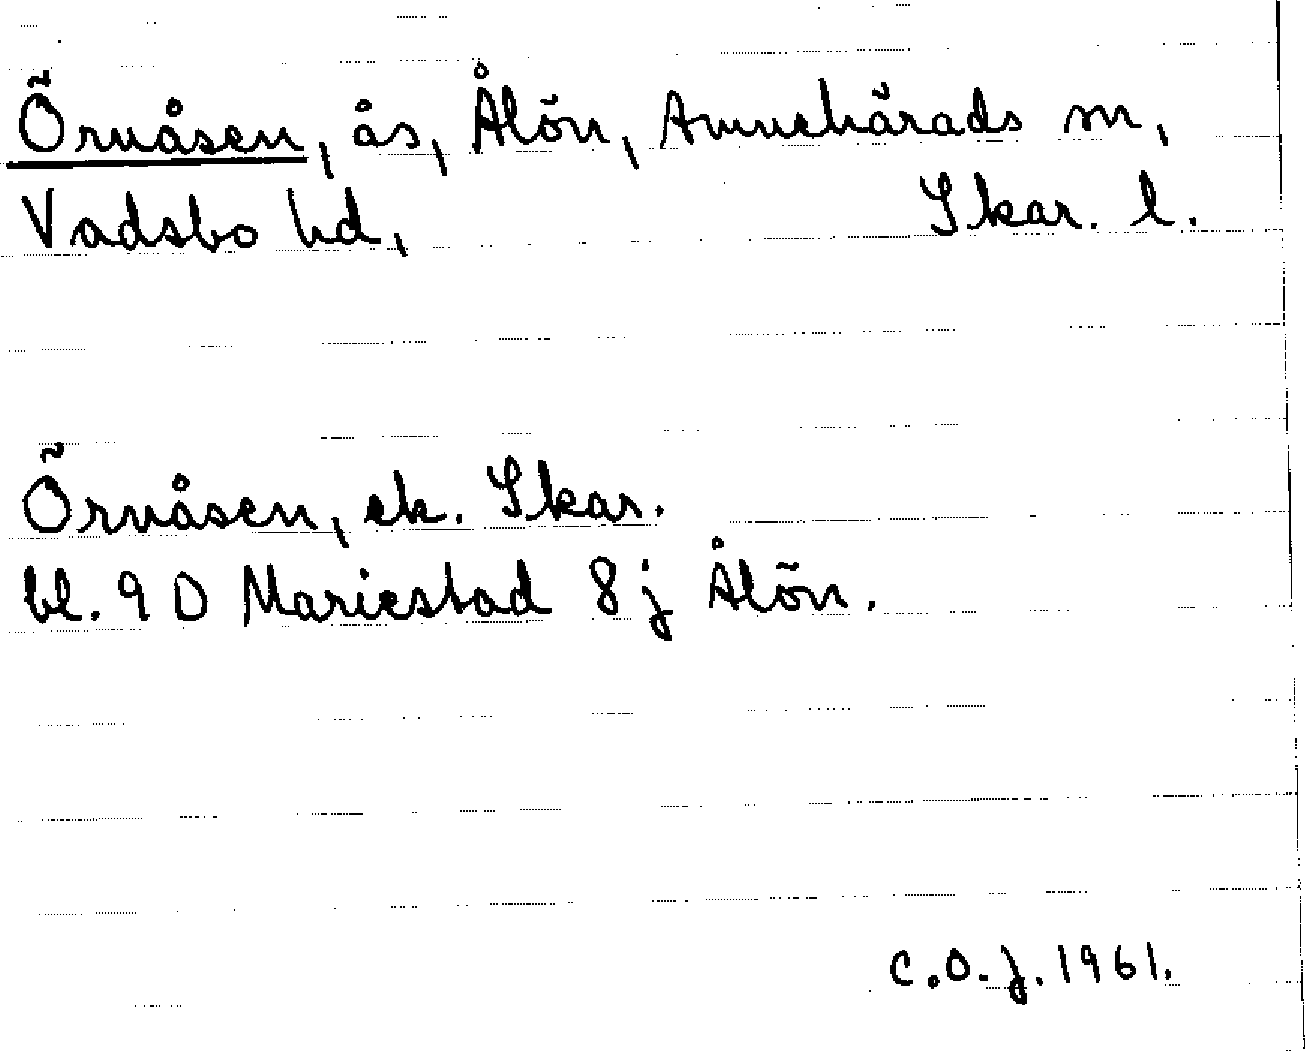 Örnåsen, ås, Ålön, Amnehärads sn,
Vadsbo hd, Skar. l.
Örnåsen, ek. Skar.
bl. 9 D Mariestad 8 j Ålön.
C.O.J. 1961.